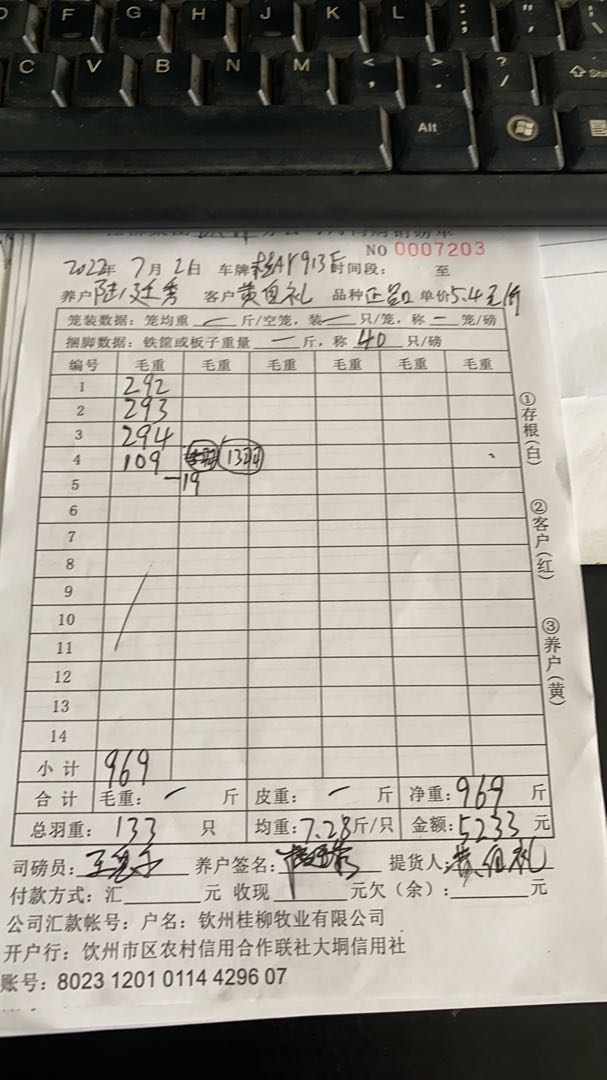 D F G H J K L
C V B N M < , > . ? / Shi
Alt
NO 0007203
2022年 7月 2日 车牌 AY913 时间段: 至
养户 陆廷秀 客户 黄组礼 品种 正品 单价 5.4元/斤
笼装数据: 笼均重 一 斤/空笼, 装 一 只/笼, 称 一 笼/磅
捆脚数据: 铁筐或板子重量 一 斤, 称 40 只/磅
编号 毛重 毛重 毛重 毛重 毛重 毛重
1 292
2 293
3 294
4 109 13羽
5 -19
6
7
8
9
10
11
12
13
14
小计 969
合计 毛重: 一 斤 皮重: 一 斤 净重: 969 斤
总羽重: 133 只 均重: 7.28 斤/只 金额: 5233 元
司磅员: 养户签名: 提货人: 黄组礼
付款方式: 汇 元 收现 元 欠(余): 元
公司汇款帐号: 户名: 钦州桂柳牧业有限公司
开户行: 钦州市区农村信用合作联社大垌信用社
账号: 8023 1201 0114 4296 07
①存根(白)
②客户(红)
③养户(黄)